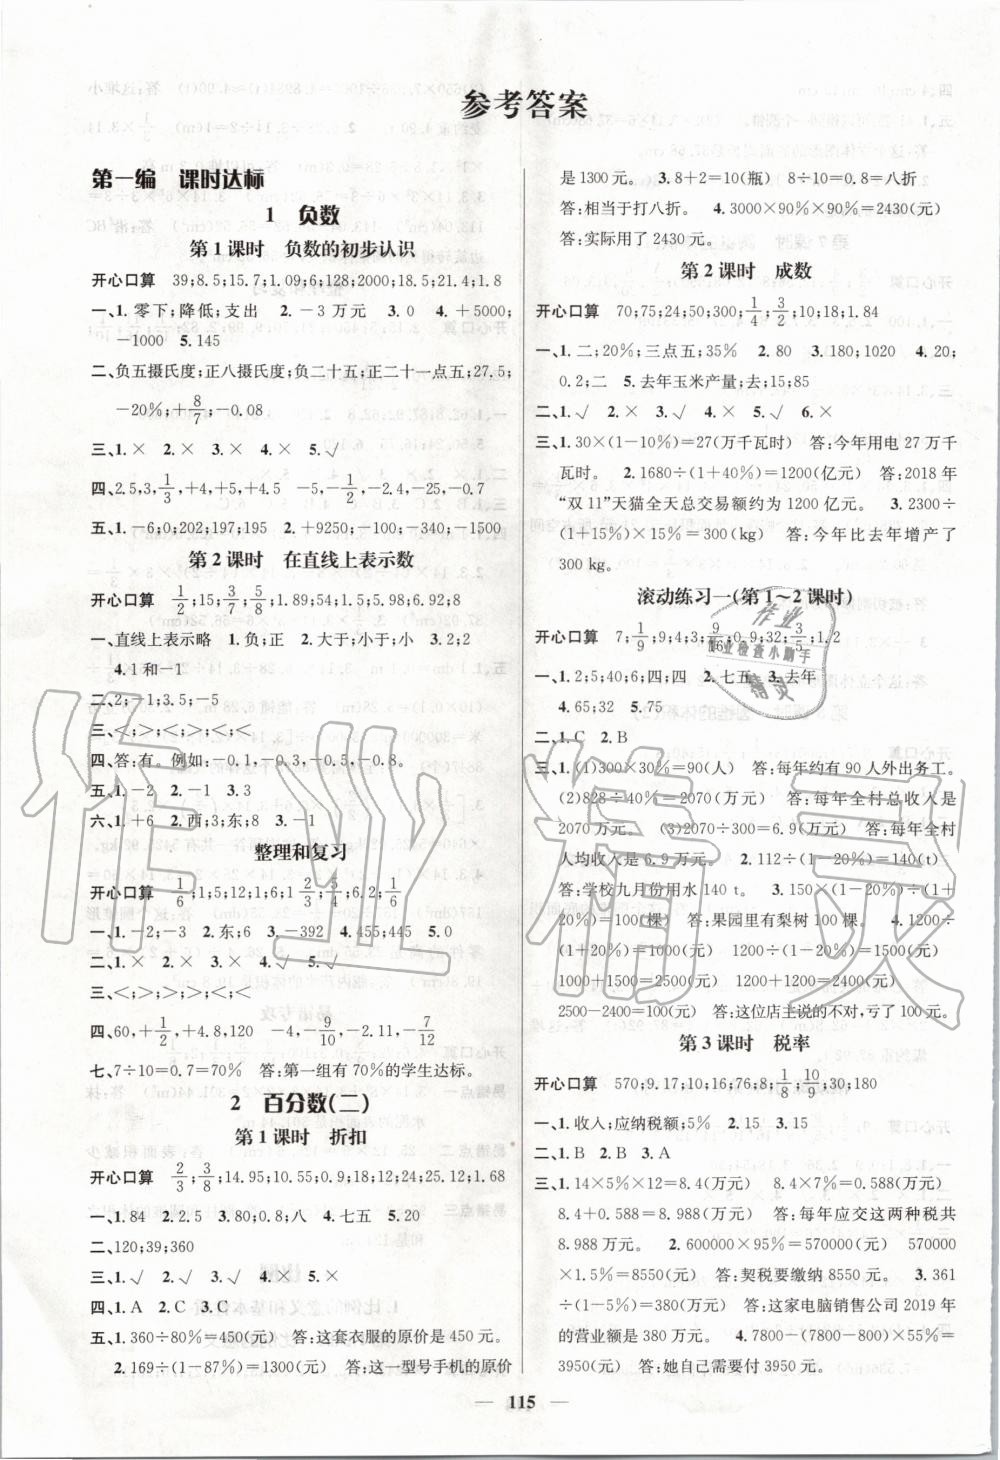 参考答案
第一编　课时达标
1　负数
第1课时　负数的初步认识
开心口算　39;8.5;15.7;1.09;6;128;2000;18.5;21.4;1.8
一、1.零下;降低;支出　2.－3万元　3.0　4.＋5000;
－1000　5.145
二、负五摄氏度;正八摄氏度;负二十五;正二十一点五;27.5;
－20%;＋8/7;－0.08
三、1.×　2.×　3.×　4.×　5.√
四、2.5,3,1/3,＋4,＋5,＋4.5　－5,－1/2,－2.4,－25,－0.7
五、1.－6;0;202;197;195　2.＋9250;－100;－340;－1500
第2课时　在直线上表示数
开心口算　1/2;15;3/7;5/8;1.89;54;1.5;5.98;6.92;8
一、直线上表示略　1.负;正　2.大于;小于;小　3.2;2
4.1和－1
二、2;－1;3.5;－5
三、＜;＞;＜;＞;＜;＜
四、答:有。例如:－0.1,－0.3,－0.5,－0.8。
五、1.－2　2.－1　3.3
六、1.＋6　2.西;3;东;8　3.－1
整理和复习
开心口算　1/6;1;5;12;1;6;1 3/5;1/4;6.2;1/6
一、1.－2;－3　2.东;6　3.－392　4.455;445　5.0
二、1.×　2.×　3.×　4.√　5.√
三、＜;＞;＞;＜;＜;＜
四、60,＋1/2,＋4.8,120　－4,－9/10,－2.11,－7/12
七、7÷10＝0.7＝70%　答:第一组有70%的学生达标。
2　百分数(二)
第1课时　折扣
开心口算　2/3;3/8;14.95;10.55;0.9;18;12;24;25.12;1.68
一、1.84　2.2.5　3.80;0.8;八　4.七五　5.20
二、120;39;360
三、1.√　2.×　3.√　4.×　5.×
四、1.A　2.C　3.C
五、1.360÷80%＝450(元)　答:这套衣服的原价是450元。
2.169÷(1－87%)＝1300(元)　答:这一型号手机的原价
是1300元。　3.8＋2＝10(瓶)　8÷10＝0.8＝八折
答:相当于打八折。　4.3000×90%×90%＝2430(元)
答:实际用了2430元。
第2课时　成数
开心口算　70;75;24;50;300;1/4;3/2;10;18;1.84
一、1.二;20%;三点五;35%　2.80　3.180;1020　4.20;
0.2;二　5.去年玉米产量;去;15;85
二、1.√　2.×　3.√　4.×　5.√　6.×
三、1.30×(1－10%)＝27(万千瓦时)　答:今年用电27万千
瓦时。　2.1680÷(1＋40%)＝1200(亿元)　答:2018年
“双11”天猫全天总交易额约为1200亿元。　3.2300÷
(1＋15%)×15%＝300(kg)　答:今年比去年增产了
300 kg。
滚动练习一(第1～2课时)
开心口算　7;1/9;9;4;3;9/16;0.9;32;3/5;1.2
一、1.2;5;40;6;四;四　2.七五　3.去年
4.65;32　5.75
二、1.C　2.B
三、1.(1)300×30%＝90(人)　答:每年约有90人外出务工。
(2)828÷40%＝2070(万元)　答:每年全村总收入是
2070万元。　(3)2070÷300＝6.9(万元)　答:每年全村
人均收入是6.9万元。　2.112÷(1－20%)＝140(t)
答:学校九月份用水140 t。　3.150×(1－20%)÷(1＋
20%)＝100(棵)　答:果园里有梨树100棵。　4.1200÷
(1＋20%)＝1000(元)　1200÷(1－20%)＝1500(元)
1000＋1500＝2500(元)　1200＋1200＝2400(元)
2500－2400＝100(元)　答:这位店主说的不对,亏了100元。
第3课时　税率
开心口算　570;9.17;10;16;76;8;1/8;10/9;30;180
一、1.收入;应纳税额;5%　2.15　3.15
二、1.B　2.B　3.A
三、1.14×5%×12＝8.4(万元)　8.4×7%＝0.588(万元)
8.4＋0.588＝8.988(万元)　答:每年应交这两种税共
8.988万元。　2.600000×95%＝570000(元)　570000
×1.5%＝8550(元)　答:契税要缴纳8550元。　3.361
÷(1－5%)＝380(万元)　答:这家电脑销售公司2019年
的营业额是380万元。　4.7800－(7800－800)×55%＝
3950(元)　答:她自己需要付3950元。
— 115 —
作业精灵